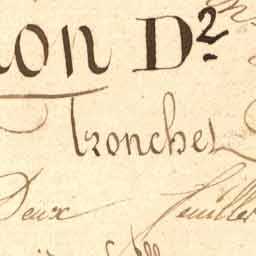 ion D.²
Tronchet
Deux feuilles